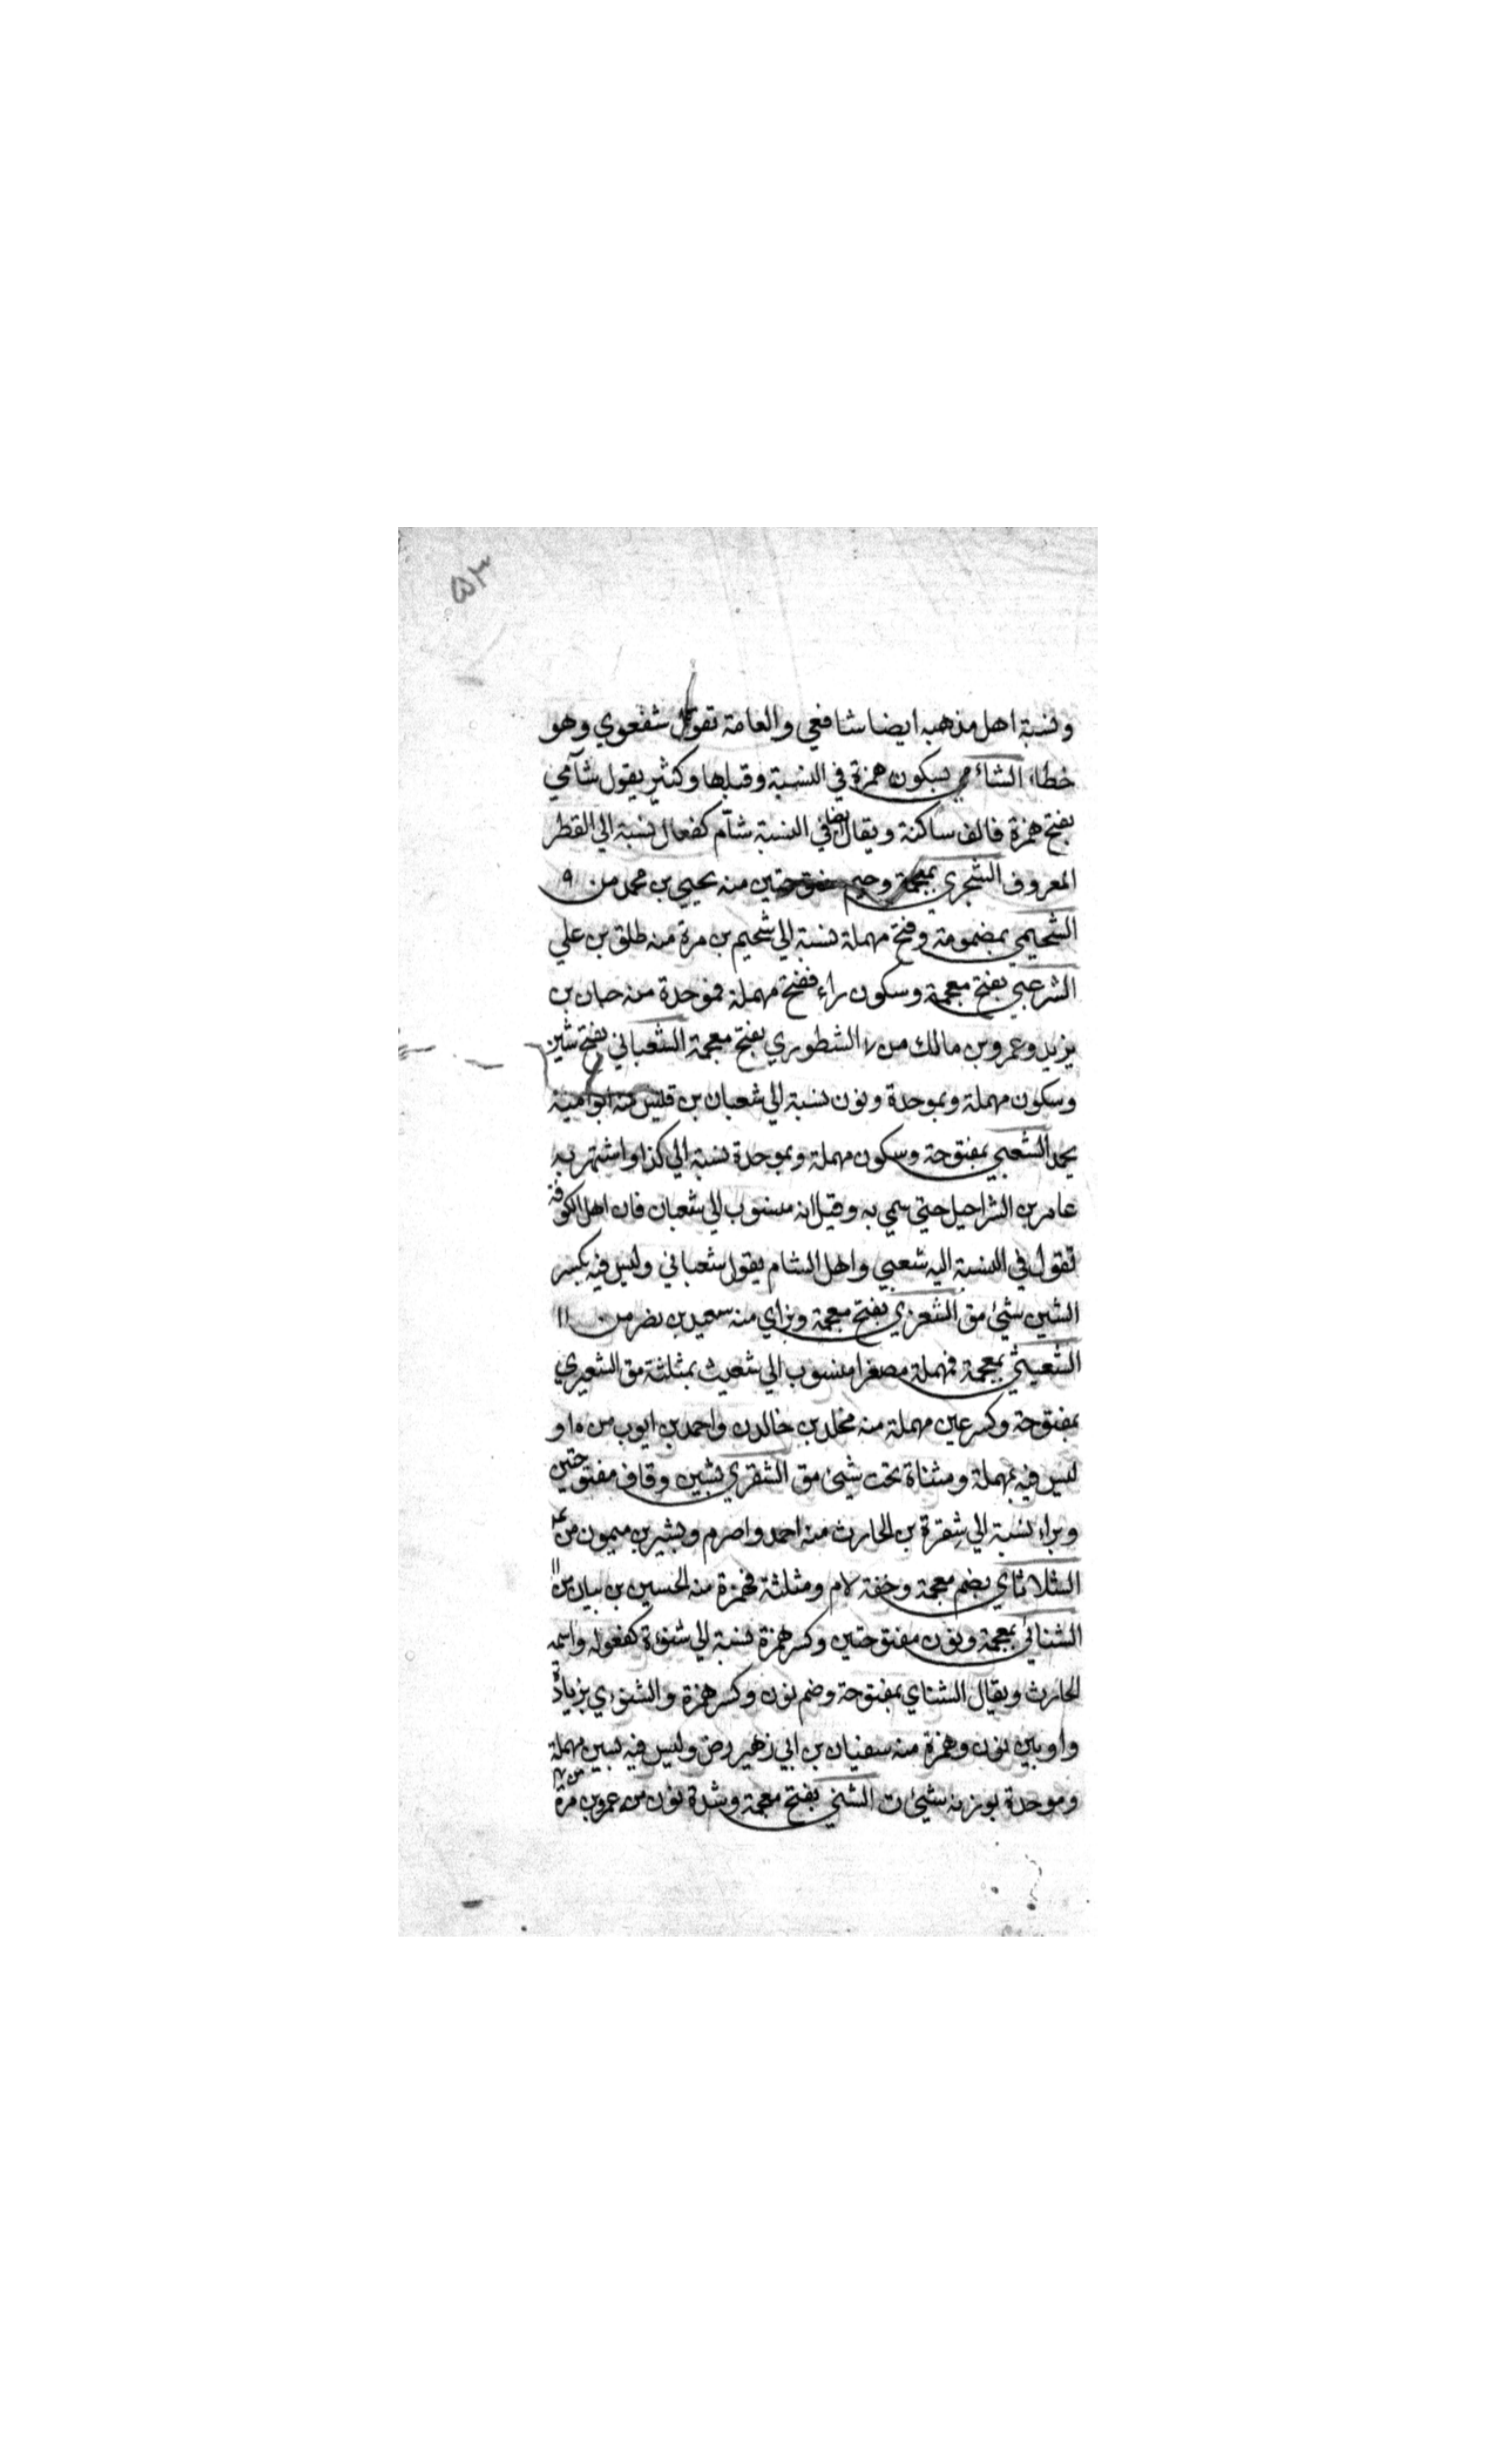 ۵۳
ونسبة اهل مذهبه ايضا شافعي والعامة تقول شفعوي وهو
خطاء الشائمي بسكون همزة في النسبة وقبلها وكثير يقول شآمي
بفتح همزة فالف ساكنة ويقال ايضا في النسبة شآم كفعال نسبة الي القطر
المعروف الشجري بمعجمة وجيم مفتوحتين منه يحيي بن محمد من ٩
الشحيمي بمضمومة وفتح مهملة نسبة الي شحيم بن مرة منه طلق بن علي
الشرعبي بفتح معجمة وسكون راء ففتح مهملة فموحدة منه حبان بن
يزيد وعمرو بن مالك من الشطوري بفتح معجمة الشعباني بفتح شين
وسكون مهملة وبموحدة ونون نسبة الي شعبان بن قيس منه ابو امية
يحمد الشعبي بمفتوحة وسكون مهملة وبموحدة نسبة الي كذا واشتهر به
عامر بن الشراحيل حتي سمي به وقيل انه منسوب الي شعبان فان اهل الكوفة
تقول في النسبة اليه شعبي واهل الشام يقول شعباني وليس فيه بكسر
الشين شيئ مق الشعزي بفتح معجمة وبزاي منه سعيد بن نضر من ١١
الشعيثي بمعجمة فمهملة مصغرا منسوب الي شعيث بمثلثة مق الشعيري
بمفتوحة وكسر عين مهملة منه مخلد بن خالد واحمد بن ايوب من ١٥ و
ليس فيه بمهملة ومثناة تحت شيئ مق الشقري بشين وقاف مفتوحتين
وبراء نسبة الي شقرة بن الحارث منه احمد واصرم وبشير بن ميمون من
الشلاثاي بضم معجمة وخفة لام ومثلثة فهمزة منه الحسين بن بيان من ١١
الشنائي بمعجمة ونون مفتوحتين وكسر همزة نسبة الي شنوءة كفعولة واسمه
الحارث ويقال الشناي بمفتوحة وضم نون وكسر همزة والشنوءي بزيادة
واو بين نون وهمزة منه سفيان بن ابي زهير رض وليس فيه بسين مهملة
وموحدة بوزنه شيئ ن الشني بفتح معجمة وشدة نون منه عمرو بن مرة من